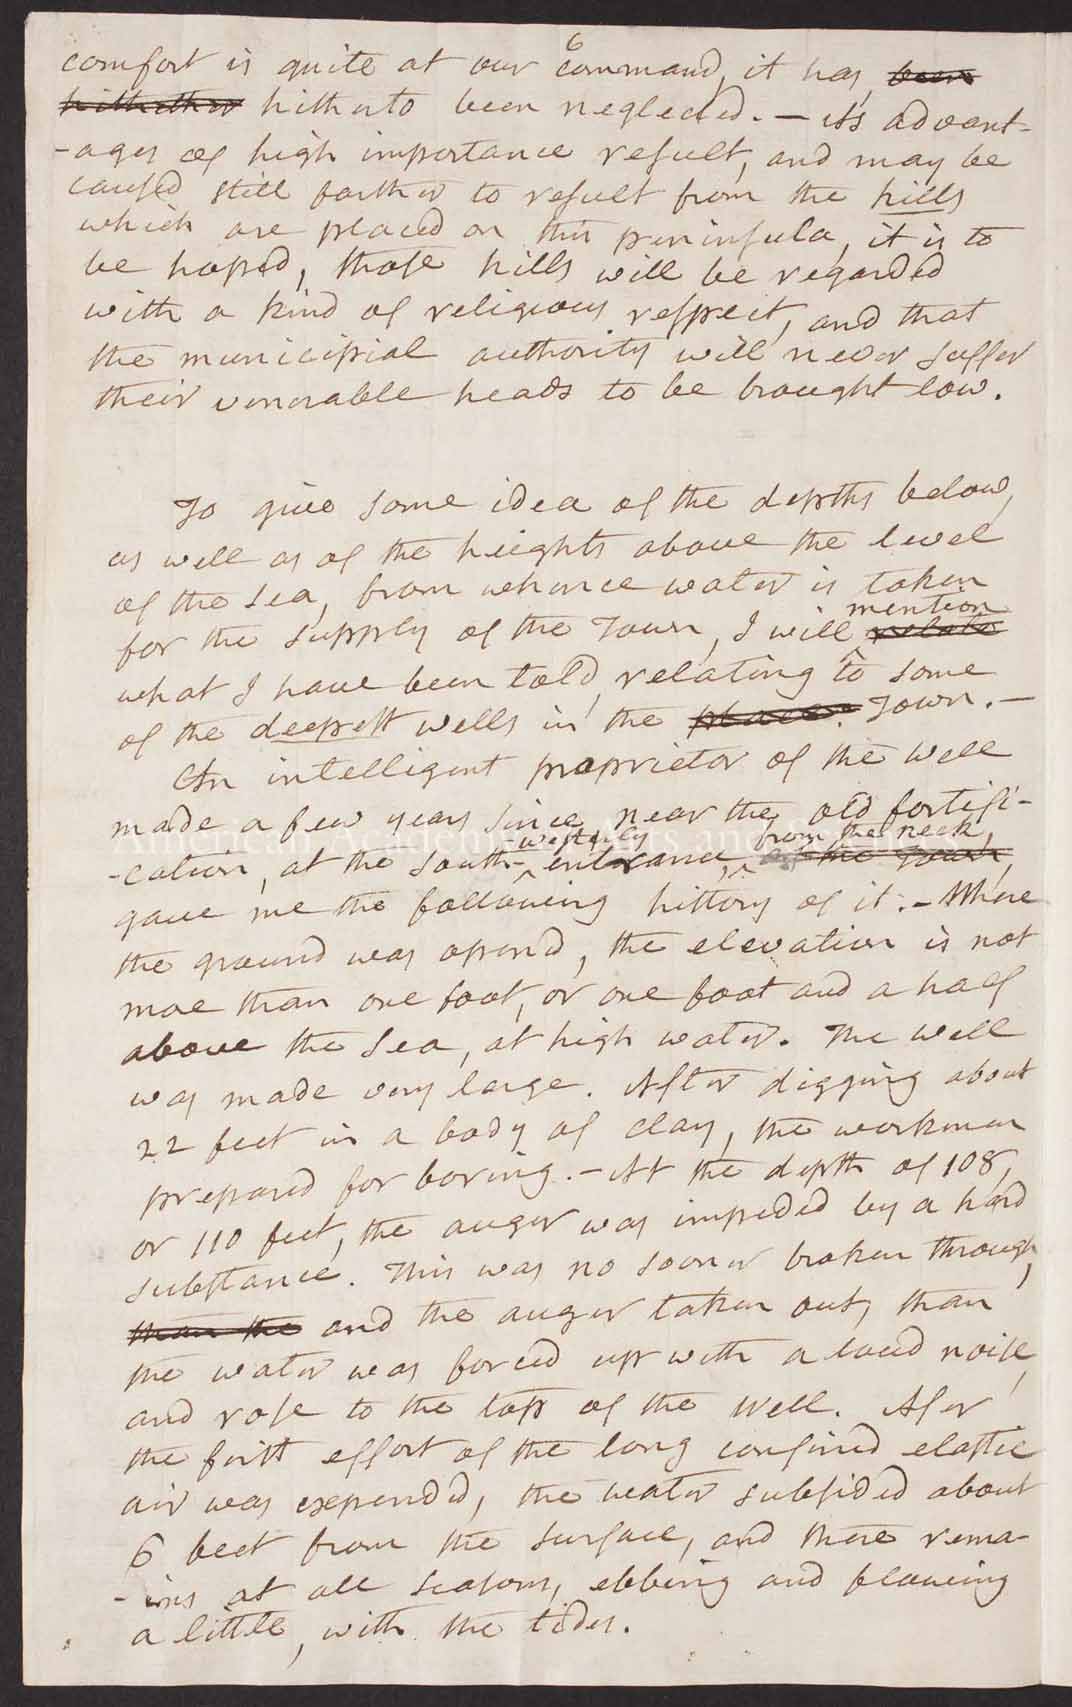 6
comfort is quite at our command, it has been
hitherto hitherto been neglected. — As advant-
-ages of high importance result, and may be
caused still farther to result from the hills
which are placed on this peninsula, it is to
be hoped, those hills will be regarded
with a kind of religious respect, and that
the municipial authority will never suffer
their venerable heads to be brought low.
To give some idea of the depths below,
as well as of the heights above the level
of the sea, from whence water is taken
mention
for the supply of the Town, I will relate
what I have been told, relating to some
of the deepest wells in the place. Town. —
An intelligent proprietor of the well
made a few years since, near the old fortifi-
westerly from the neck,
-cation, at the south- entrance, of the Town,
gave me the following history of it. — Where
the ground was opend, the elevation is not
moe than one foot, or one foot and a half
above the Sea, at high water. The well
was made very large. After digging about
22 feet in a body of clay, the workmen
prepared for boring. — At the depth of 108,
or 110 feet, the auger was impeded by a hard
substance. This was no sooner broken through,
than the and the auger taken out, than
the water was forced up with a loud noise,
and rose to the top of the well. After
the first effort of the long confined elastic
air was expended, the water subsided about
6 feet from the surface, and there rema-
-ins at all seasons, ebbing and flowing
a little, with the tides.
American Academy of Arts and Sciences